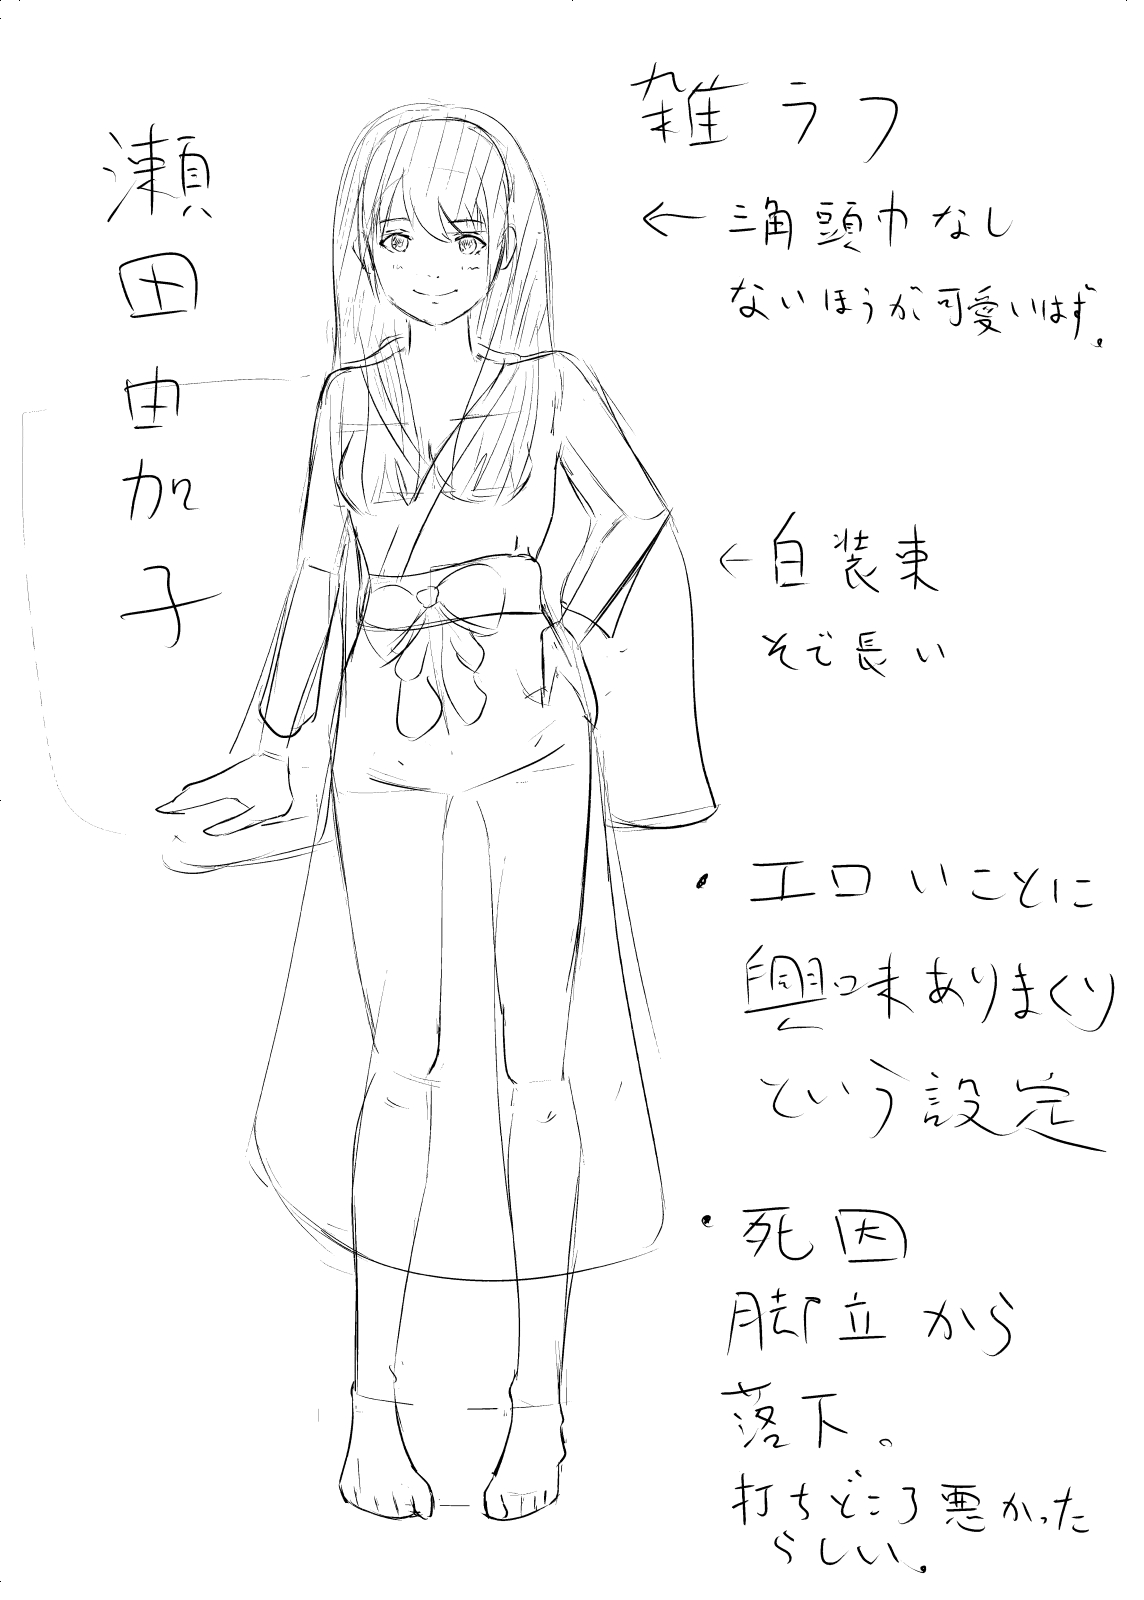 雑ラフ
瀬田由加子
← 三角頭巾なし
ないほうが可愛いはず。
← 白装束
そで長い
・エロいことに
興味ありまくり
という設定
・死因
脚立から
落下。
打ちどころ悪かった
らしい。